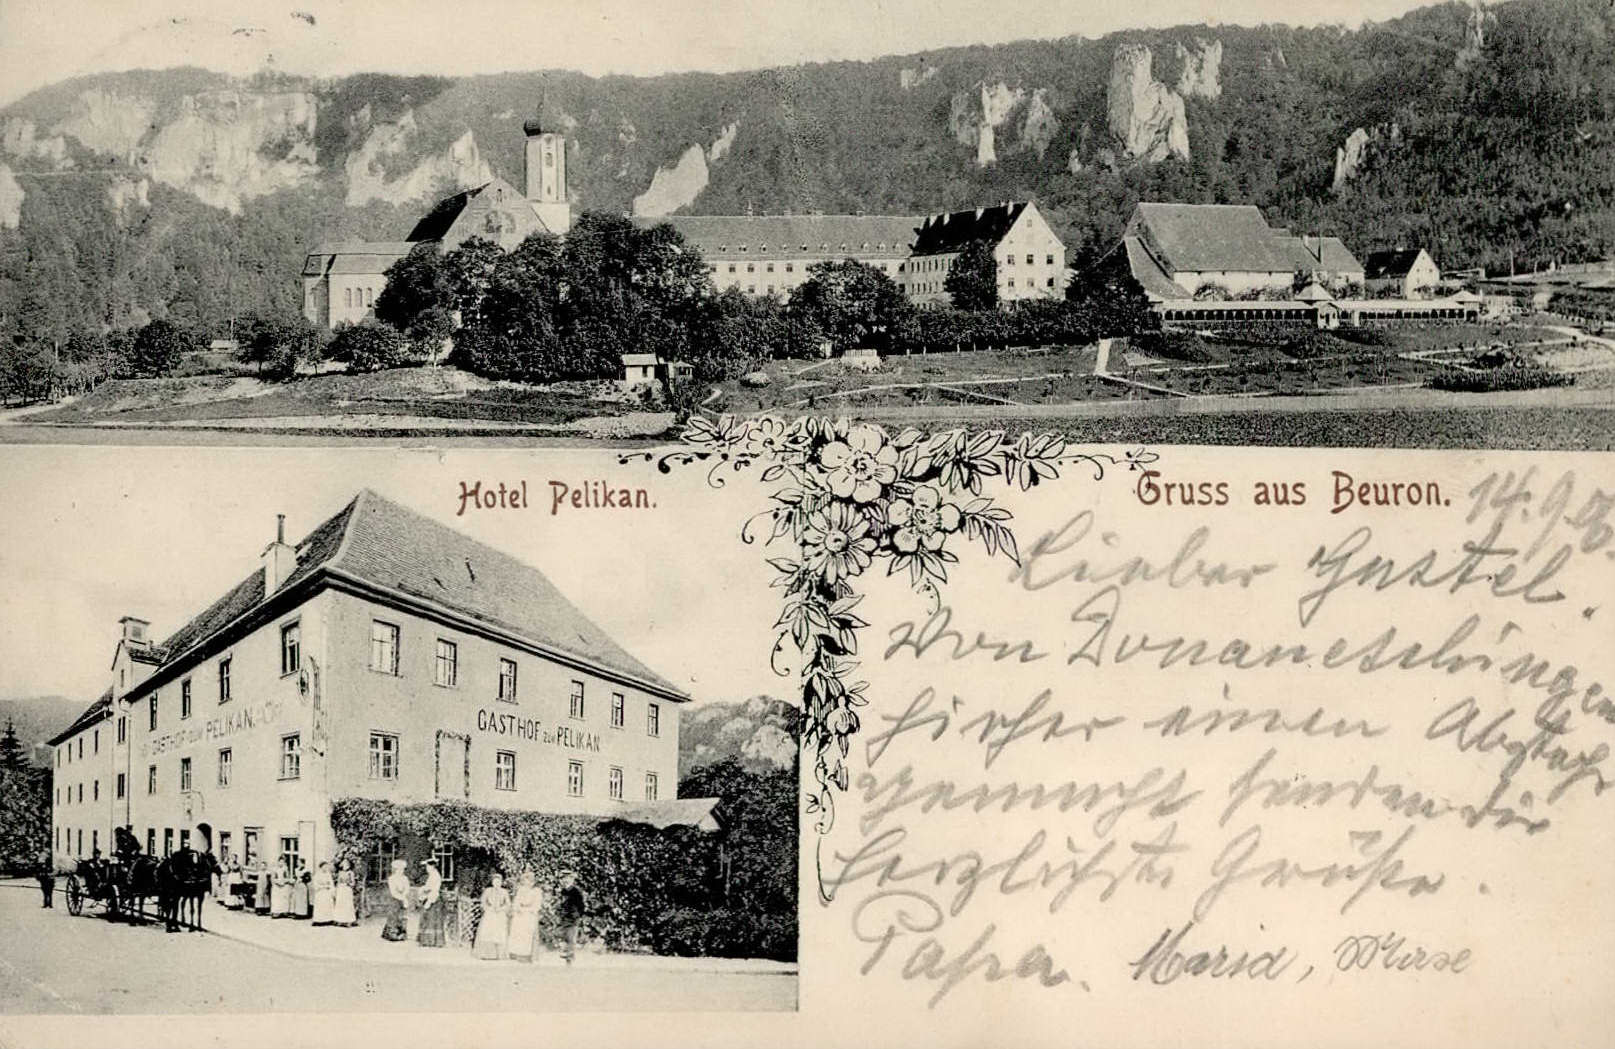 Hotel Pelikan.
Gruss aus Beuron.
14.9.06.
Lieber Gustel.
Von Donaueschingen
hierher einen Abstecher
gemacht senden dir
herzlichste Grüße.
Papa. Maria,
GASTHOF zum PELIKAN
GASTHOF zum PELIKAN